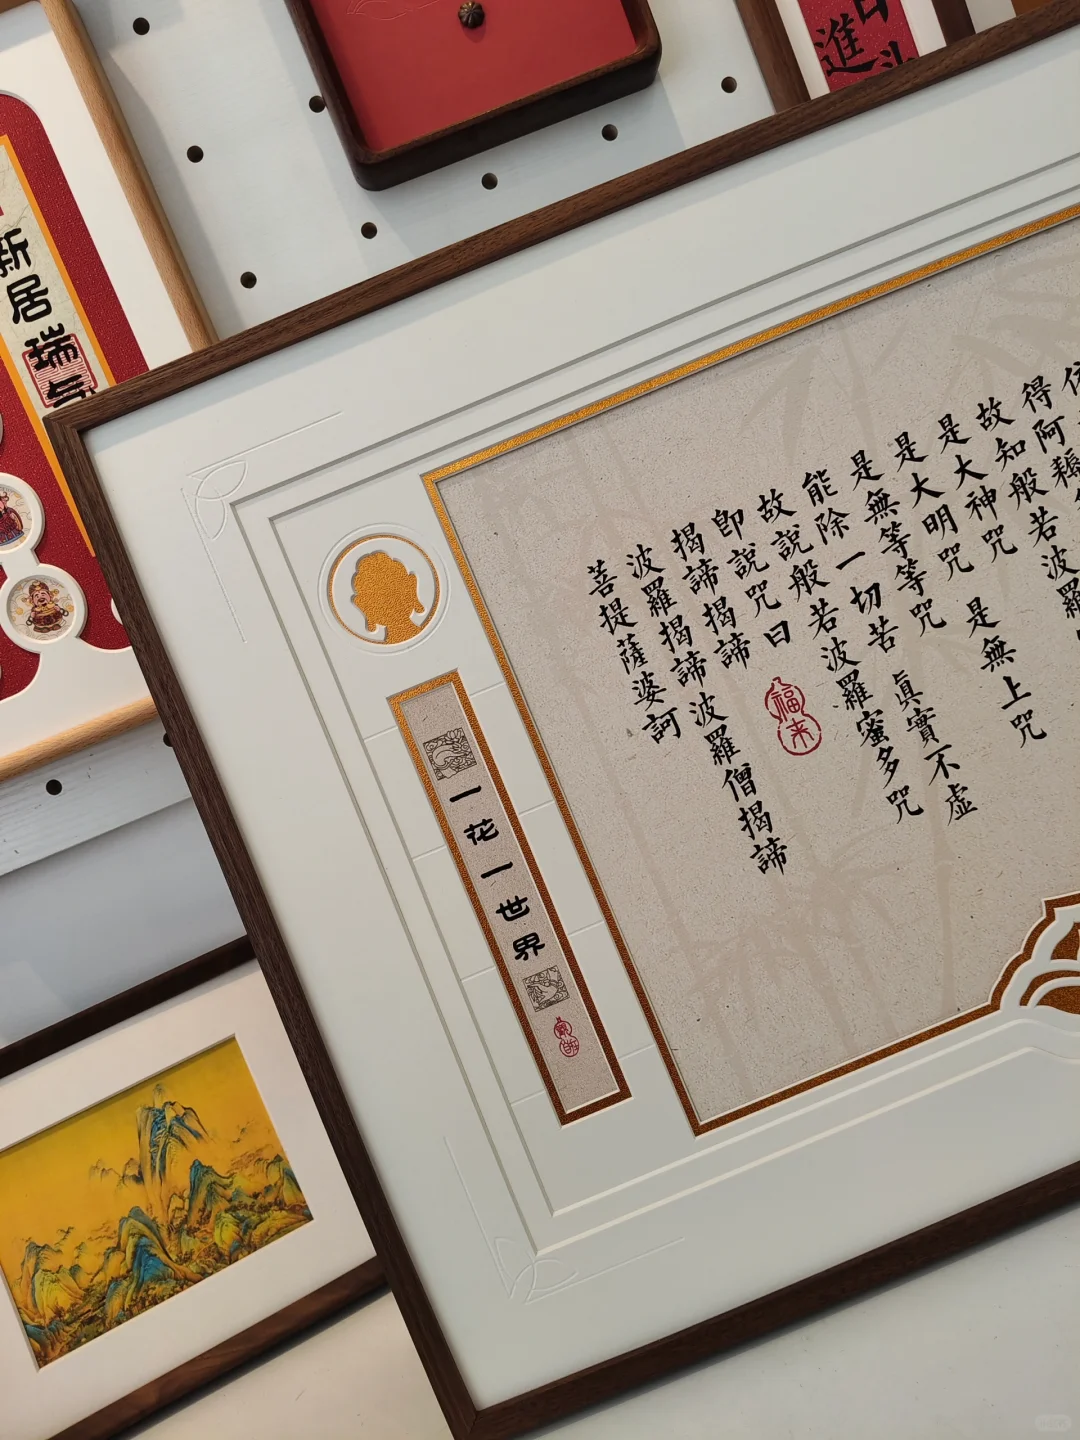 得阿耨
故知般若波羅
是大神咒
是大明咒 是無上咒
是無等等咒
能除一切苦 真實不虛
故說般若波羅蜜多咒
即說咒曰
揭諦揭諦
波羅揭諦波羅僧揭諦
菩提薩婆訶
福来
一花一世界
新居瑞气
進